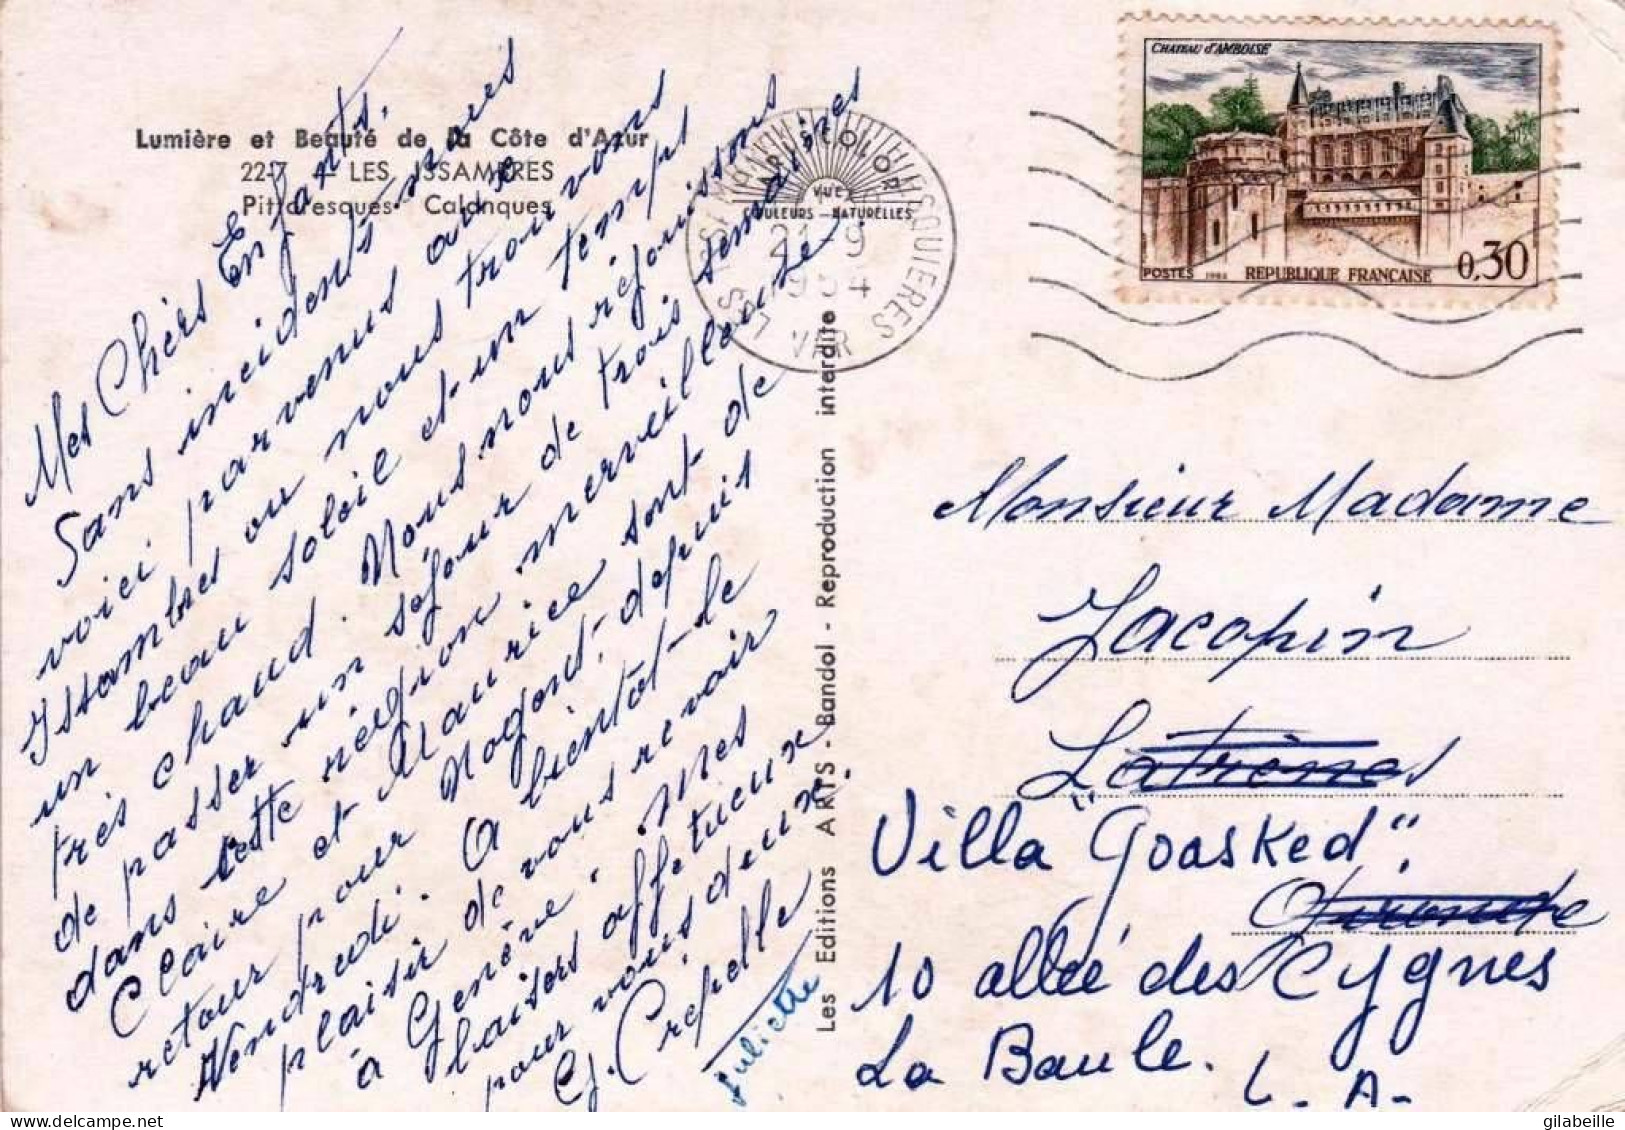 Lumière et Beauté de la Côte d'Azur
227 - LES ISSAMBRES
Pittoresques Calanques
Mes Chers Enfants.
Sans incidents nous
voici parvenus aux
Issambres ou nous trouvons
un beau soleil et un temps
très chaud. Nous nous réjouissons
de passer un séjour de trois semaines
dans cette région merveilleuse.
Claire et Maurice sont de
retour pour Nogent, depuis
Vendredi. A bientôt le
plaisir de vous revoir
à Genève. Mes
baisers affectueux
pour vous deux.
G. Crepelle
Juliette
Les Editions ARTS - Bandol - Reproduction interdite
ARISCOLOR
VUE
COULEURS NATURELLES
21-9
VAR
CHATEAU d'AMBOISE
POSTES
REPUBLIQUE FRANÇAISE
0,30
Monsieur Madame
Jacopin
Latrènes
Villa "Goasked".
Gironde
10 allée des Cygnes
La Baule. L. A.
gilabeille